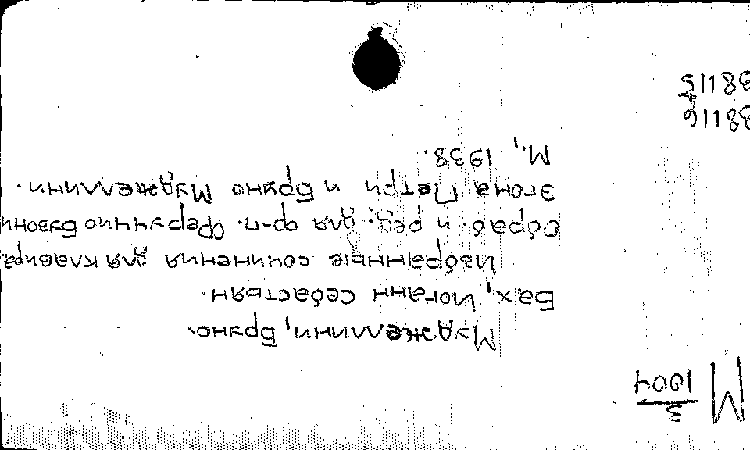 М
1004
3
Муджеллини, Бруно.
Бах, Иоганн Себастьян.
Избранные сочинения для клавира
Обраб. и ред. для ф-п. Ферруччио Бузони
Эгона Петри и Бруно Муджеллини.
М., 1938.
38116
38115